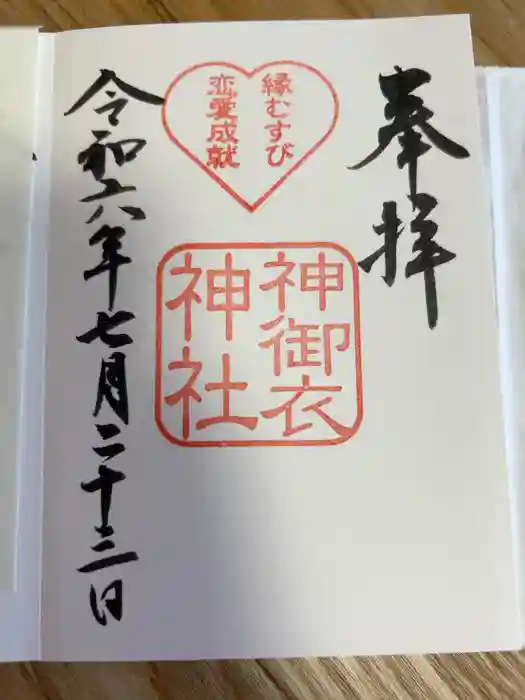 奉拝
縁むすび
恋愛成就
神御衣
神社
令和六年七月二十三日